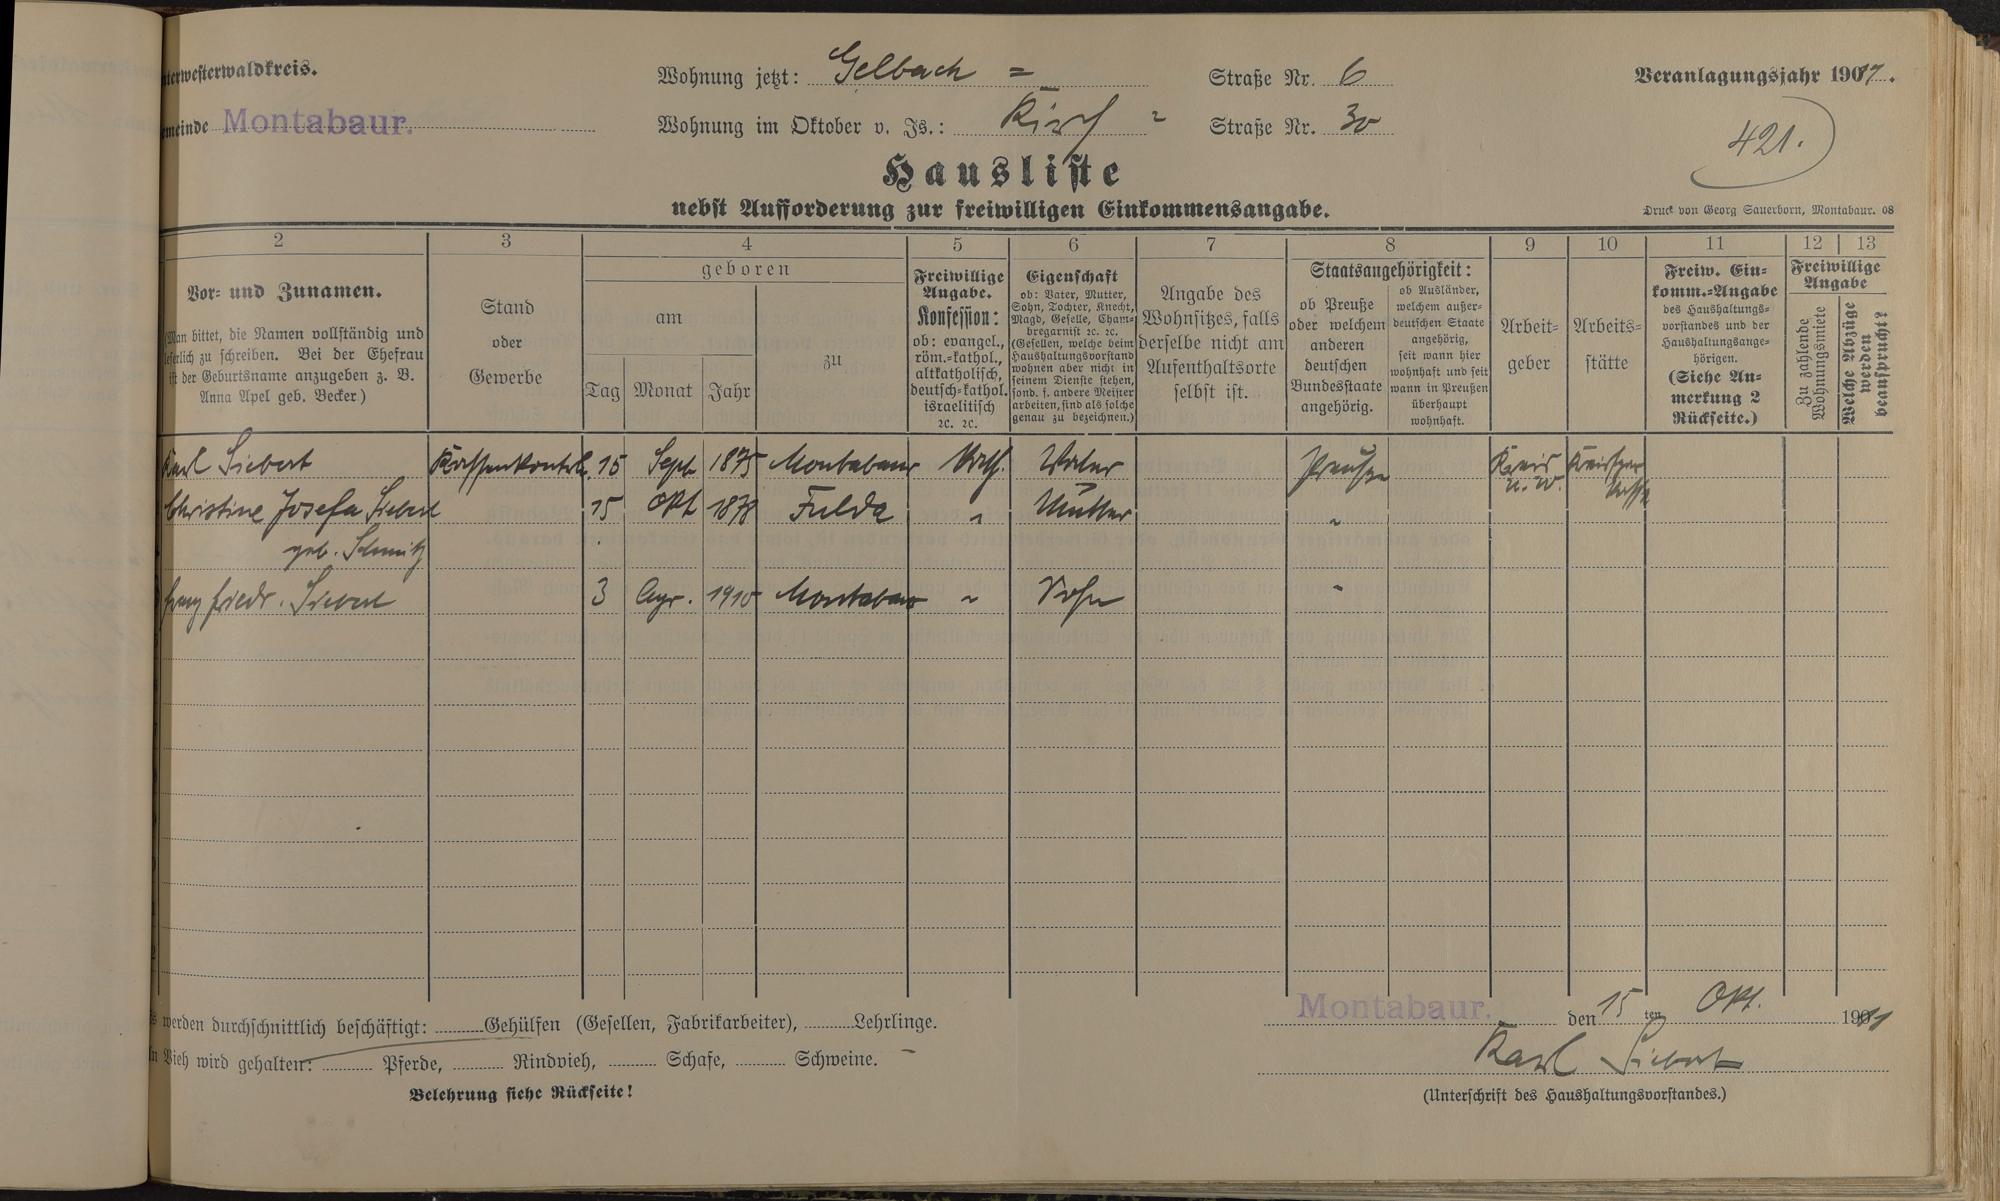 nterwesterwaldkreis.
Wohnung jetzt: Gelbach = Straße Nr. 6
Veranlagungsjahr 1901
emeinde Montabaur.
Wohnung im Oktober v. Js.: Kirch = Straße Nr. 30
421.
Hausliste
nebst Aufforderung zur freiwilligen Einkommensangabe.
Druck von Georg Sauerborn, Montabaur. 08
2 3 4 5 6 7 8 9 10 11 12 13
Vor- und Zunamen.
(Man bittet, die Namen vollständig und
leserlich zu schreiben. Bei der Ehefrau
ist der Geburtsname anzugeben z. B.
Anna Apel geb. Becker.)
Stand
oder
Gewerbe
geboren
am
Tag Monat Jahr
zu
Freiwillige
Angabe.
Konfession:
ob: evangel.,
röm.-kathol.,
altkatholisch,
deutsch-kathol.
israelitisch
ꝛc. ꝛc.
Eigenschaft
ob: Vater, Mutter,
Sohn, Tochter, Knecht,
Magd, Geselle, Cham-
bregarnist ꝛc. ꝛc.
(Gesellen, welche beim
Haushaltungsvorstand
wohnen aber nicht in
seinem Dienste stehen,
sond. f. andere Meister
arbeiten, sind als solche
genau zu bezeichnen.)
Angabe des
Wohnsitzes, falls
derselbe nicht am
Aufenthaltsorte
selbst ist.
Staatsangehörigkeit:
ob Preuße
oder welchem
anderen
deutschen
Bundesstaate
angehörig.
ob Ausländer,
welchem außer-
deutschen Staate
angehörig,
seit wann hier
wohnhaft und seit
wann in Preußen
überhaupt
wohnhaft.
Arbeit-
geber
Arbeits-
stätte
Freiw. Ein-
komm.-Angabe
des Haushaltungs-
vorstandes und der
Haushaltungsange-
hörigen.
(Siehe An-
merkung 2
Rückseite.)
Freiwillige
Angabe
Zu zahlende
Wohnungsmiete
Welche Abzüge
werden
beansprucht?
Karl Siebert Kassenkontrl. 15 Sept 1875 Montabaur Kath. Vater Preußen Kreis
Christine Josefa Siebert 15 Okt 1878 Fulda " Mutter "
geb. Schmitz
Franz Friedr. Siebert 3 Apr. 1910 Montabaur " Sohn "
Es werden durchschnittlich beschäftigt: Gehülfen (Gesellen, Fabrikarbeiter), Lehrlinge.
An Vieh wird gehalten: Pferde, Rindvieh, Schafe, Schweine. –
Belehrung siehe Rückseite!
Montabaur. den 15 ten Okt. 1911
Karl Siebert
(Unterschrift des Haushaltungsvorstandes.)